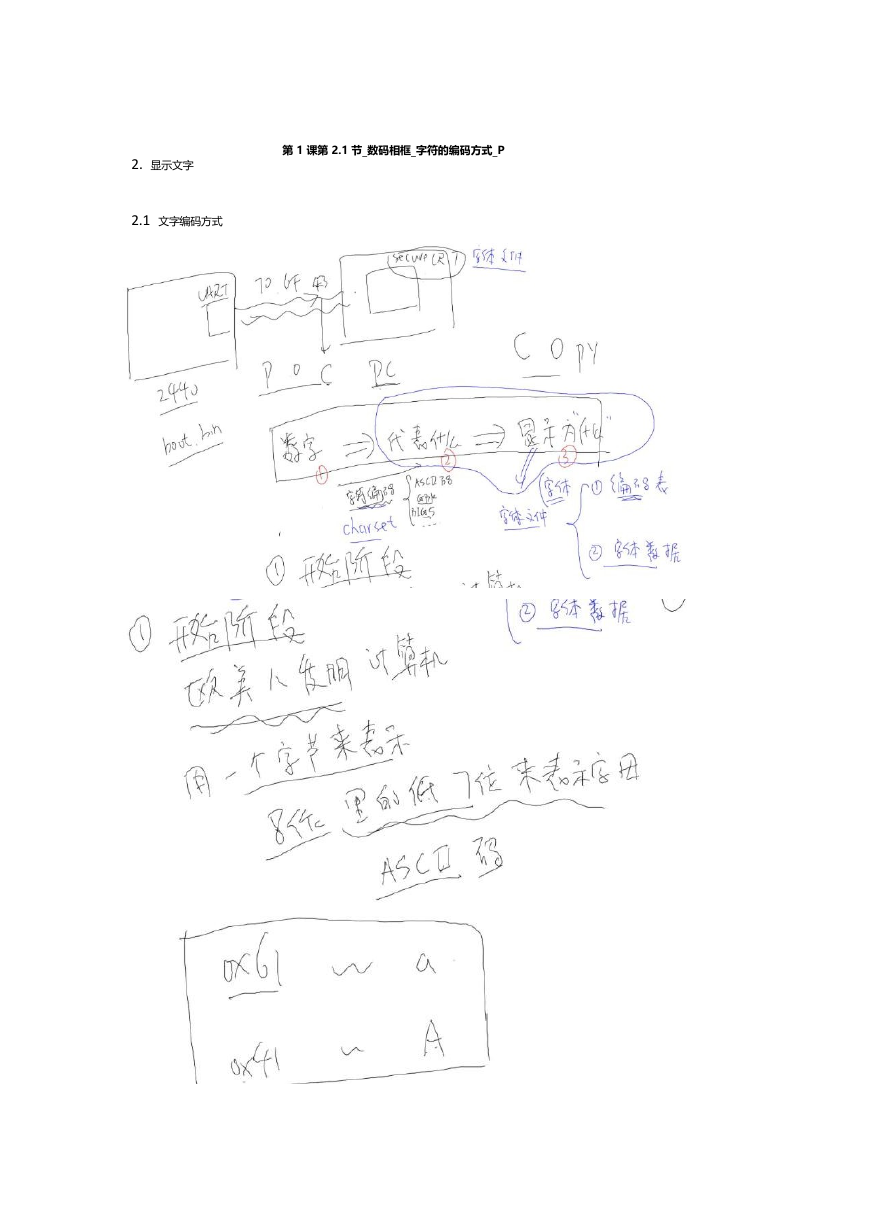 第 1 课第 2.1 节_数码相框_字符的编码方式_P
2. 显示文字
2.1 文字编码方式
secure CRT 字体文件
UART 70 6F 43
2440 P O C PC C O Py
boot.bin
数字 ⇒ 代表什么 ⇒ 显示为"什么"
① ② ③
字符编码 ASCII码
charset BIG5 ...
字体 ① 编码表
字体文件
② 字体数据
① 开始阶段
② 字体数据
① 开始阶段
欧美人发明计算机
用一个字节来表示
8位里的低7位来表示字母
ASCII 码
0x61 ~ a
0x41 ~ A